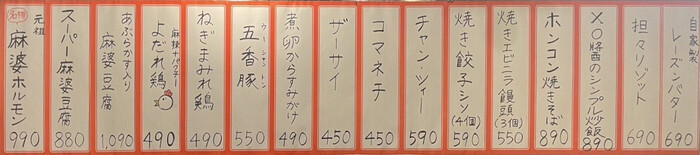 自家製
レーズンバター
690
担々リゾット
690
XO醤のシンプル炒飯
890
ホンコン焼きそば
890
焼きエビニラ饅頭
(3個)
550
焼き餃子シソ
(4個)
590
チャンツィー
590
コマネチ
450
ザーサイ
450
煮卵からすみがけ
490
ウーシャントン
五香豚
550
ねぎまみれ鶏
490
麻辣ナパクチー
よだれ鶏
490
あぶらかす入り
麻婆豆腐
1,090
スーパー麻婆豆腐
880
名物
元祖
麻婆ホルモン
990